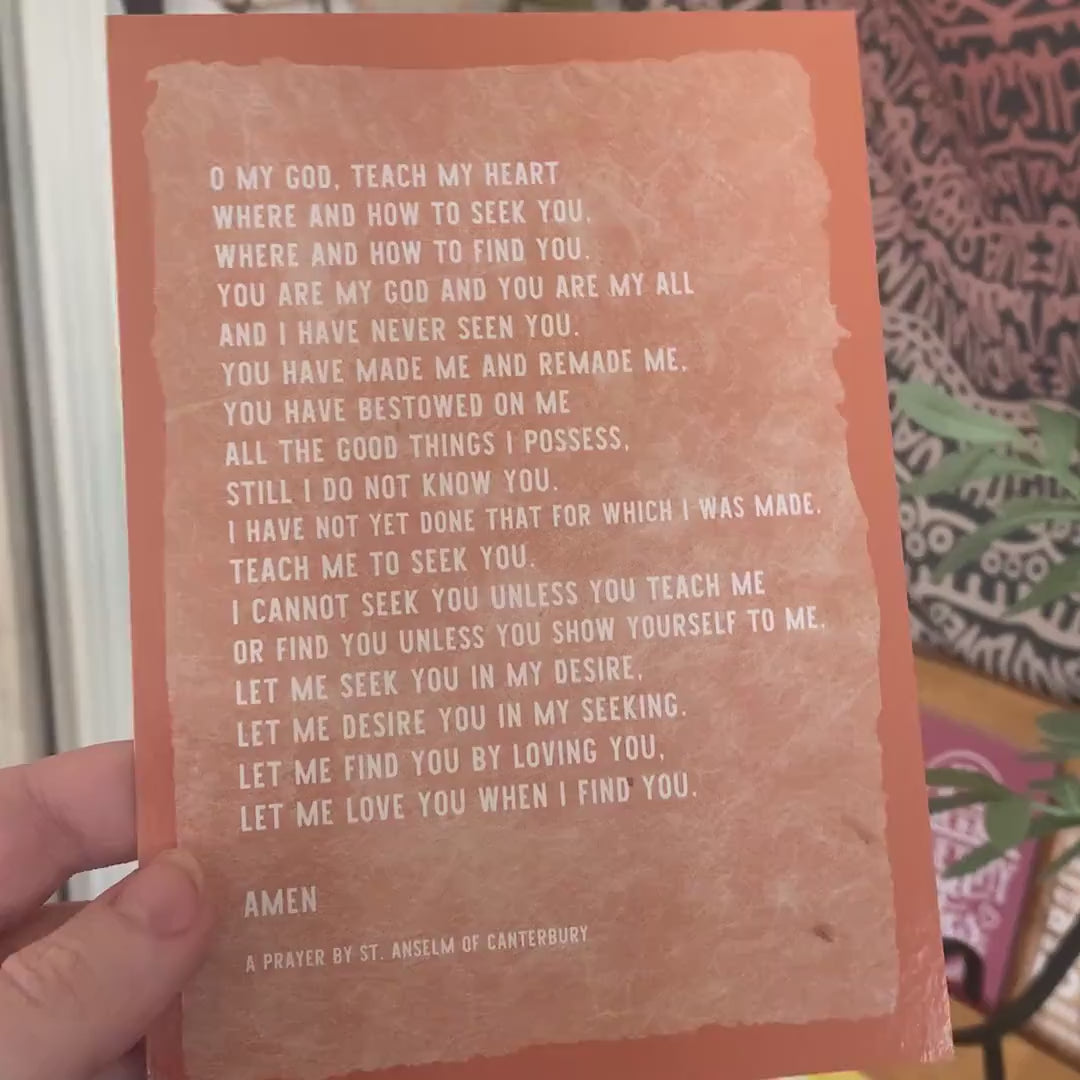 O MY GOD, TEACH MY HEART
WHERE AND HOW TO SEEK YOU,
WHERE AND HOW TO FIND YOU.
YOU ARE MY GOD AND YOU ARE MY ALL
AND I HAVE NEVER SEEN YOU.
YOU HAVE MADE ME AND REMADE ME,
YOU HAVE BESTOWED ON ME
ALL THE GOOD THINGS I POSSESS,
STILL I DO NOT KNOW YOU.
I HAVE NOT YET DONE THAT FOR WHICH I WAS MADE.
TEACH ME TO SEEK YOU.
I CANNOT SEEK YOU UNLESS YOU TEACH ME
OR FIND YOU UNLESS YOU SHOW YOURSELF TO ME.
LET ME SEEK YOU IN MY DESIRE,
LET ME DESIRE YOU IN MY SEEKING.
LET ME FIND YOU BY LOVING YOU,
LET ME LOVE YOU WHEN I FIND YOU.
AMEN
A PRAYER BY ST. ANSELM OF CANTERBURY